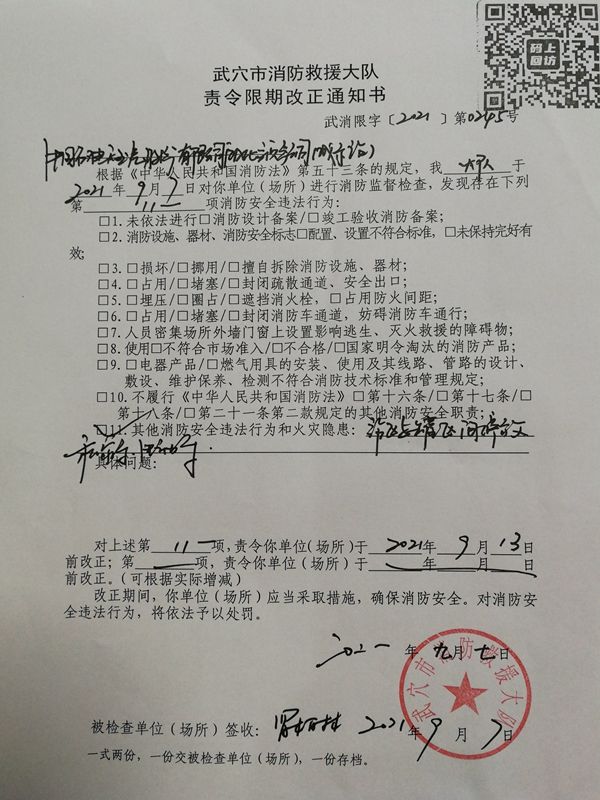 码上
回访
武穴市消防救援大队
责令限期改正通知书
武消限字〔2021〕第0245号
根据《中华人民共和国消防法》第五十三条的规定，我 大队 于
2021 年 9 月 7 日对你单位（场所）进行消防监督检查，发现存在下列
第 11 项消防安全违法行为：
□1.未依法进行□消防设计备案/□竣工验收消防备案；
□2.消防设施、器材、消防安全标志□配置、设置不符合标准，□未保持完好有
效；
□3.□损坏/□挪用/□擅自拆除消防设施、器材；
□4.□占用/□堵塞/□封闭疏散通道、安全出口；
□5.□埋压/□圈占/□遮挡消火栓，□占用防火间距；
□6.□占用/□堵塞/□封闭消防车通道，妨碍消防车通行；
□7.人员密集场所外墙门窗上设置影响逃生、灭火救援的障碍物；
□8.使用□不符合市场准入/□不合格/□国家明令淘汰的消防产品；
□9.□电器产品/□燃气用具的安装、使用及其线路、管路的设计、
敷设、维护保养、检测不符合消防技术标准和管理规定；
□10.不履行《中华人民共和国消防法》□第十六条/□第十七条/□
第十八条/□第二十一条第二款规定的其他消防安全职责；
□11.其他消防安全违法行为和火灾隐患：
具体问题：
对上述第 11 项，责令你单位（场所）于 2021年 9 月 13 日
前改正；第 项，责令你单位（场所）于 年 月 日
前改正。（可根据实际增减）
改正期间，你单位（场所）应当采取措施，确保消防安全。对消防安
全违法行为，将依法予以处罚。
二〇二一 年 九 月 七 日
武穴市消防救援大队
被检查单位（场所）签收： 2021 年 9 月 7 日
一式两份，一份交被检查单位（场所），一份存档。